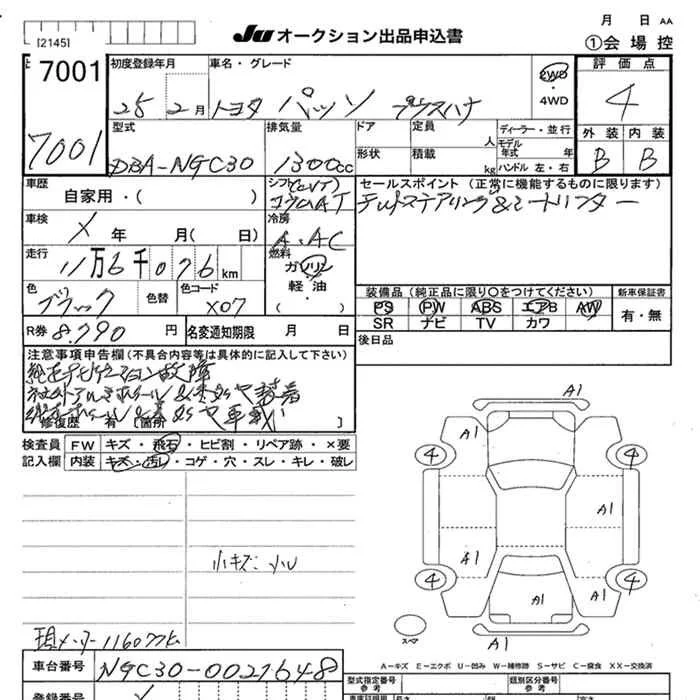 月 日 AA
[2145]
JU オークション出品申込書
①会 場 控
7001
7001
初度登録年月
25 2月
車名・グレード
トヨタ パッソ プラスハナ
2WD
・
4WD
評 価 点
4
外 装 内 装
B B
型式
DBA-NGC30
排気量
1300cc
ドア
形状
定員
人
積載
kg
ディーラー・並行
モデル
年式 年
ハンドル 左・右
車歴
自家用・( )
シフト(CVT)
コラムAT
セールスポイント (正常に機能するものに限ります)
車検
X 年 月( 日)
冷房
A・AC
走行
11万6千076km
燃料
ガソリン
軽・油
( )
色
ブラック
色替
色コード
X07
装備品(純正品に限り○をつけてください)
PS PW ABS エアB AW
SR ナビ TV カワ
新車保証書
有・無
R券 8.790 円
名変通知期限 月 日
後日品
注意事項申告欄(不具合内容等は具体的に記入して下さい)
純正ナビゲーション故障
修復歴 有 [箇所 ]
検査員 FW キズ・飛石・ヒビ割・リペア跡・×要
記入欄 内装 キズ・汚レ・コゲ・穴・スレ・キレ・破レ
A1
A1
4
4
A1
A1
4
4
A1
A1
A1
小キズ 小凹
現メーター 116077k
スペア
A-キズ E-エクボ U-凹み W-補修跡 S-サビ C-腐食 XX-交換済
車台番号
NGC30-0021648
型式指定番号
参考
類別区分番号
参考
登録番号